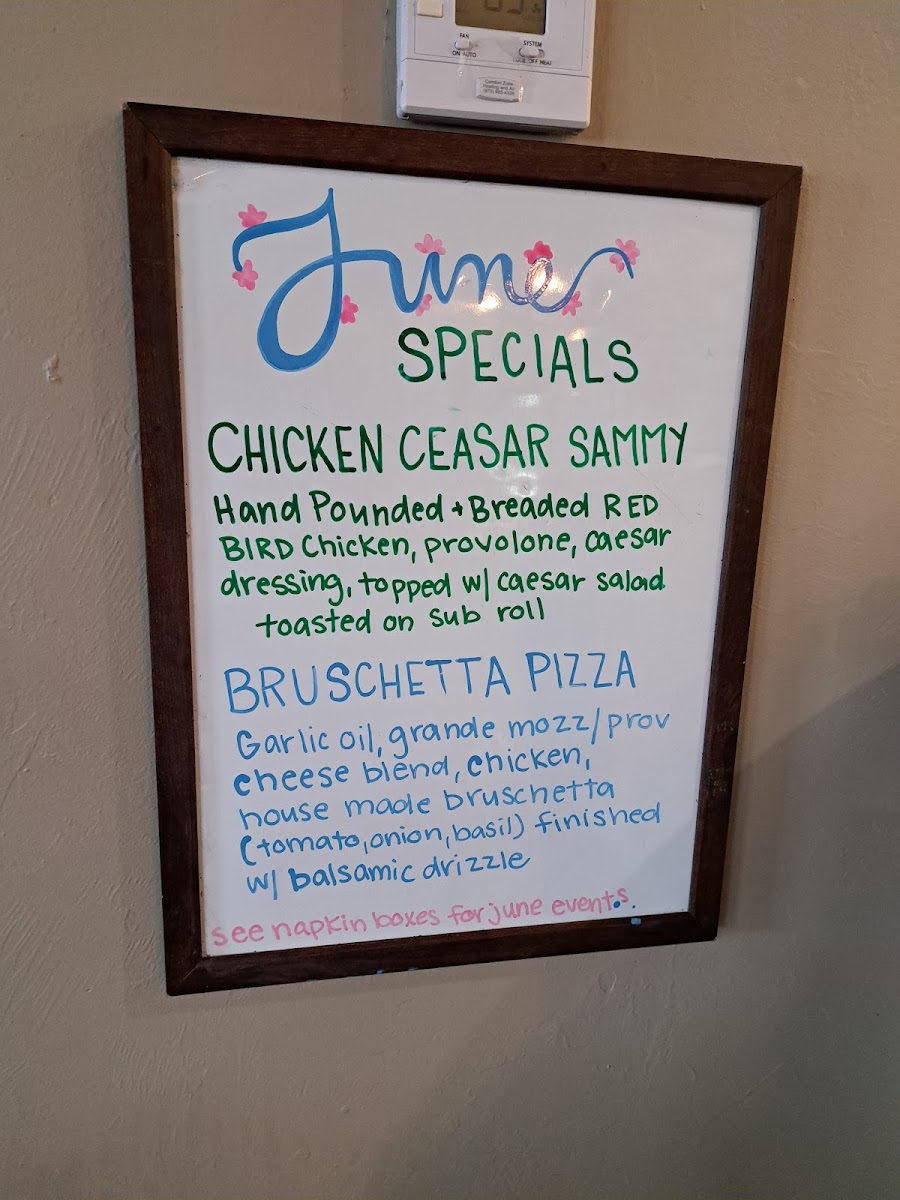 FAN
SYSTEM
ON AUTO
OFF HEAT
Comfort Zone
Heating and Air
June
SPECIALS
CHICKEN CEASAR SAMMY
Hand Pounded + Breaded RED
BIRD Chicken, provolone, caesar
dressing, topped w/ caesar salad
toasted on sub roll
BRUSCHETTA PIZZA
Garlic oil, grande mozz/prov
cheese blend, chicken,
house made bruschetta
(tomato, onion, basil) finished
w/ balsamic drizzle
see napkin boxes for june events.